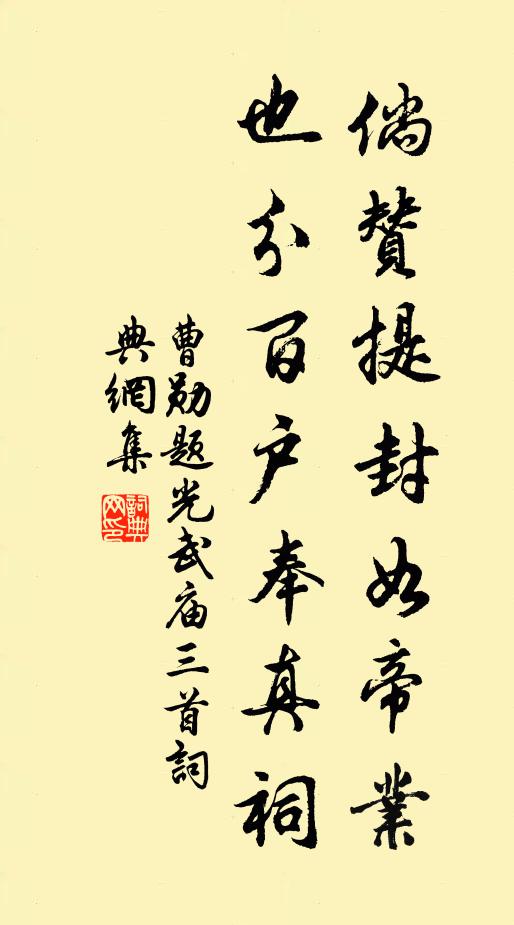 倘贊提封如帝業
也分百户奉真祠
曹勛題光武庙三首詞
典網集
詞典網印